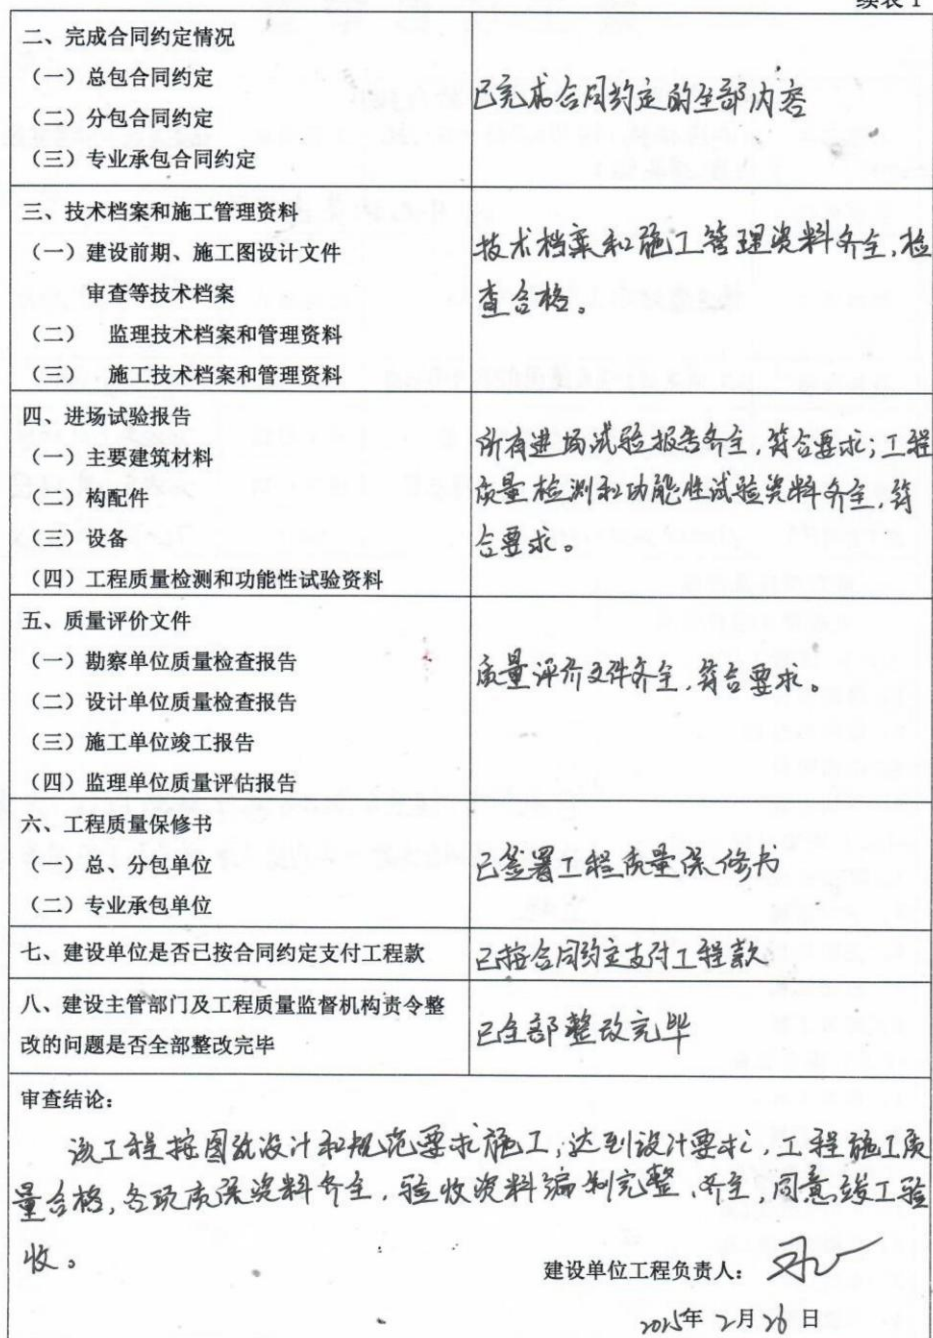 续表 1
二、完成合同约定情况
（一）总包合同约定
（二）分包合同约定
（三）专业承包合同约定
已完成合同约定的全部内容
三、技术档案和施工管理资料
（一）建设前期、施工图设计文件
审查等技术档案
（二） 监理技术档案和管理资料
（三） 施工技术档案和管理资料
技术档案和施工管理资料齐全，检
查合格。
四、进场试验报告
（一）主要建筑材料
（二）构配件
（三）设备
（四）工程质量检测和功能性试验资料
所有进场试验报告齐全，符合要求；工程
质量检测和功能性试验资料齐全，符
合要求。
五、质量评价文件
（一）勘察单位质量检查报告
（二）设计单位质量检查报告
（三）施工单位竣工报告
（四）监理单位质量评估报告
质量评价文件齐全，符合要求。
六、工程质量保修书
（一）总、分包单位
（二）专业承包单位
已签署工程质量保修书
七、建设单位是否已按合同约定支付工程款
已按合同约定支付工程款
八、建设主管部门及工程质量监督机构责令整
改的问题是否全部整改完毕
已全部整改完毕
审查结论：
该工程按图纸设计和规范要求施工，达到设计要求，工程施工质
量合格，各项质保资料齐全，验收资料编制完整、齐全，同意竣工验
收。
建设单位工程负责人：
2025年 2月 26 日